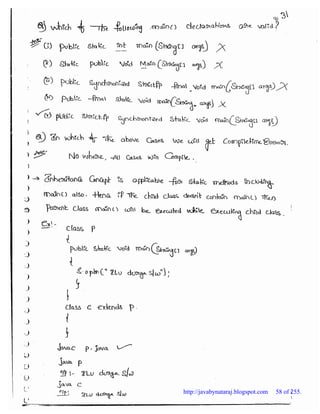 31
Q) which of the following main() declarations are valid?
Ans: (1) public static int main(String[] args) X
(2) static public void Main(String[] args) X
(3) public synchronized strictfp final void main(String[] args) X
(4) public final static void main(String args) X
✓ (5) public strictfp synchronized static void main(String[] args)
Q) In which of the above Cases we will get CompiletimeError.
Ans: No where, All Cases will Compile.
→ Inheritance Concept is applicable for static methods including
main() also. Hence if the child class doesn't contain main() then
Parent Class main() will be executed while executing child class.
Ex:-
class P
{
public static void main(String[] args)
{
S.o.pln("
");
}
}
class C extends P
{
}
Javac P.Java ✓
Java P
O/P:-
Java C
O/P:
http://javabynataraj.blogspot.com 58 of 255.